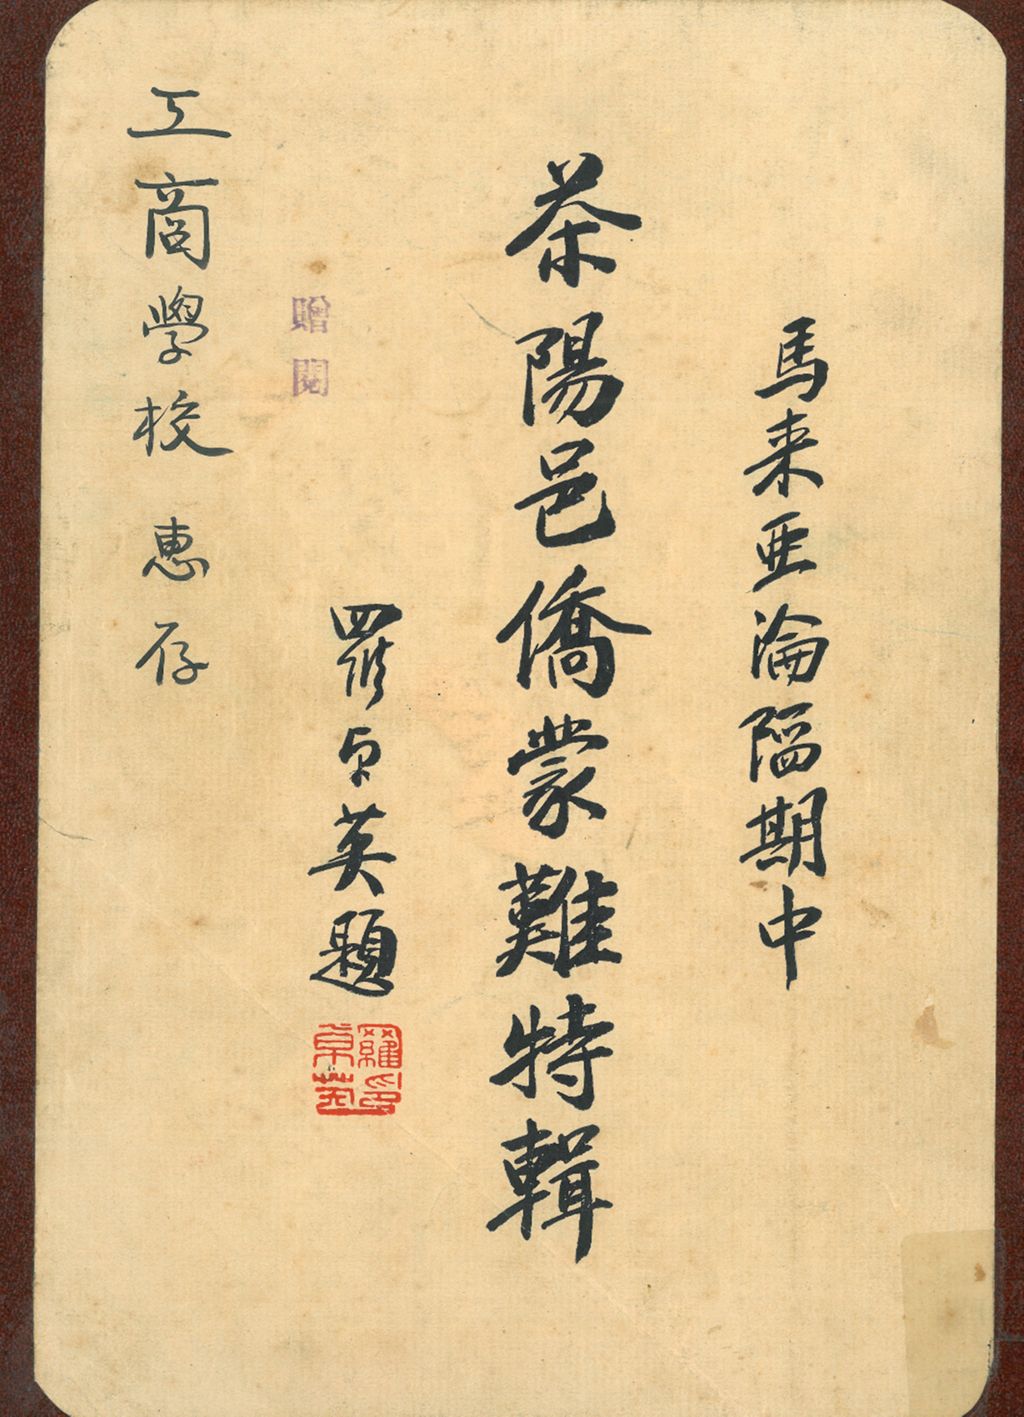 馬来亜淪陷期中
茶陽邑僑蒙難特輯
羅卓英題
羅卓英印
贈閱
工商學校 惠存